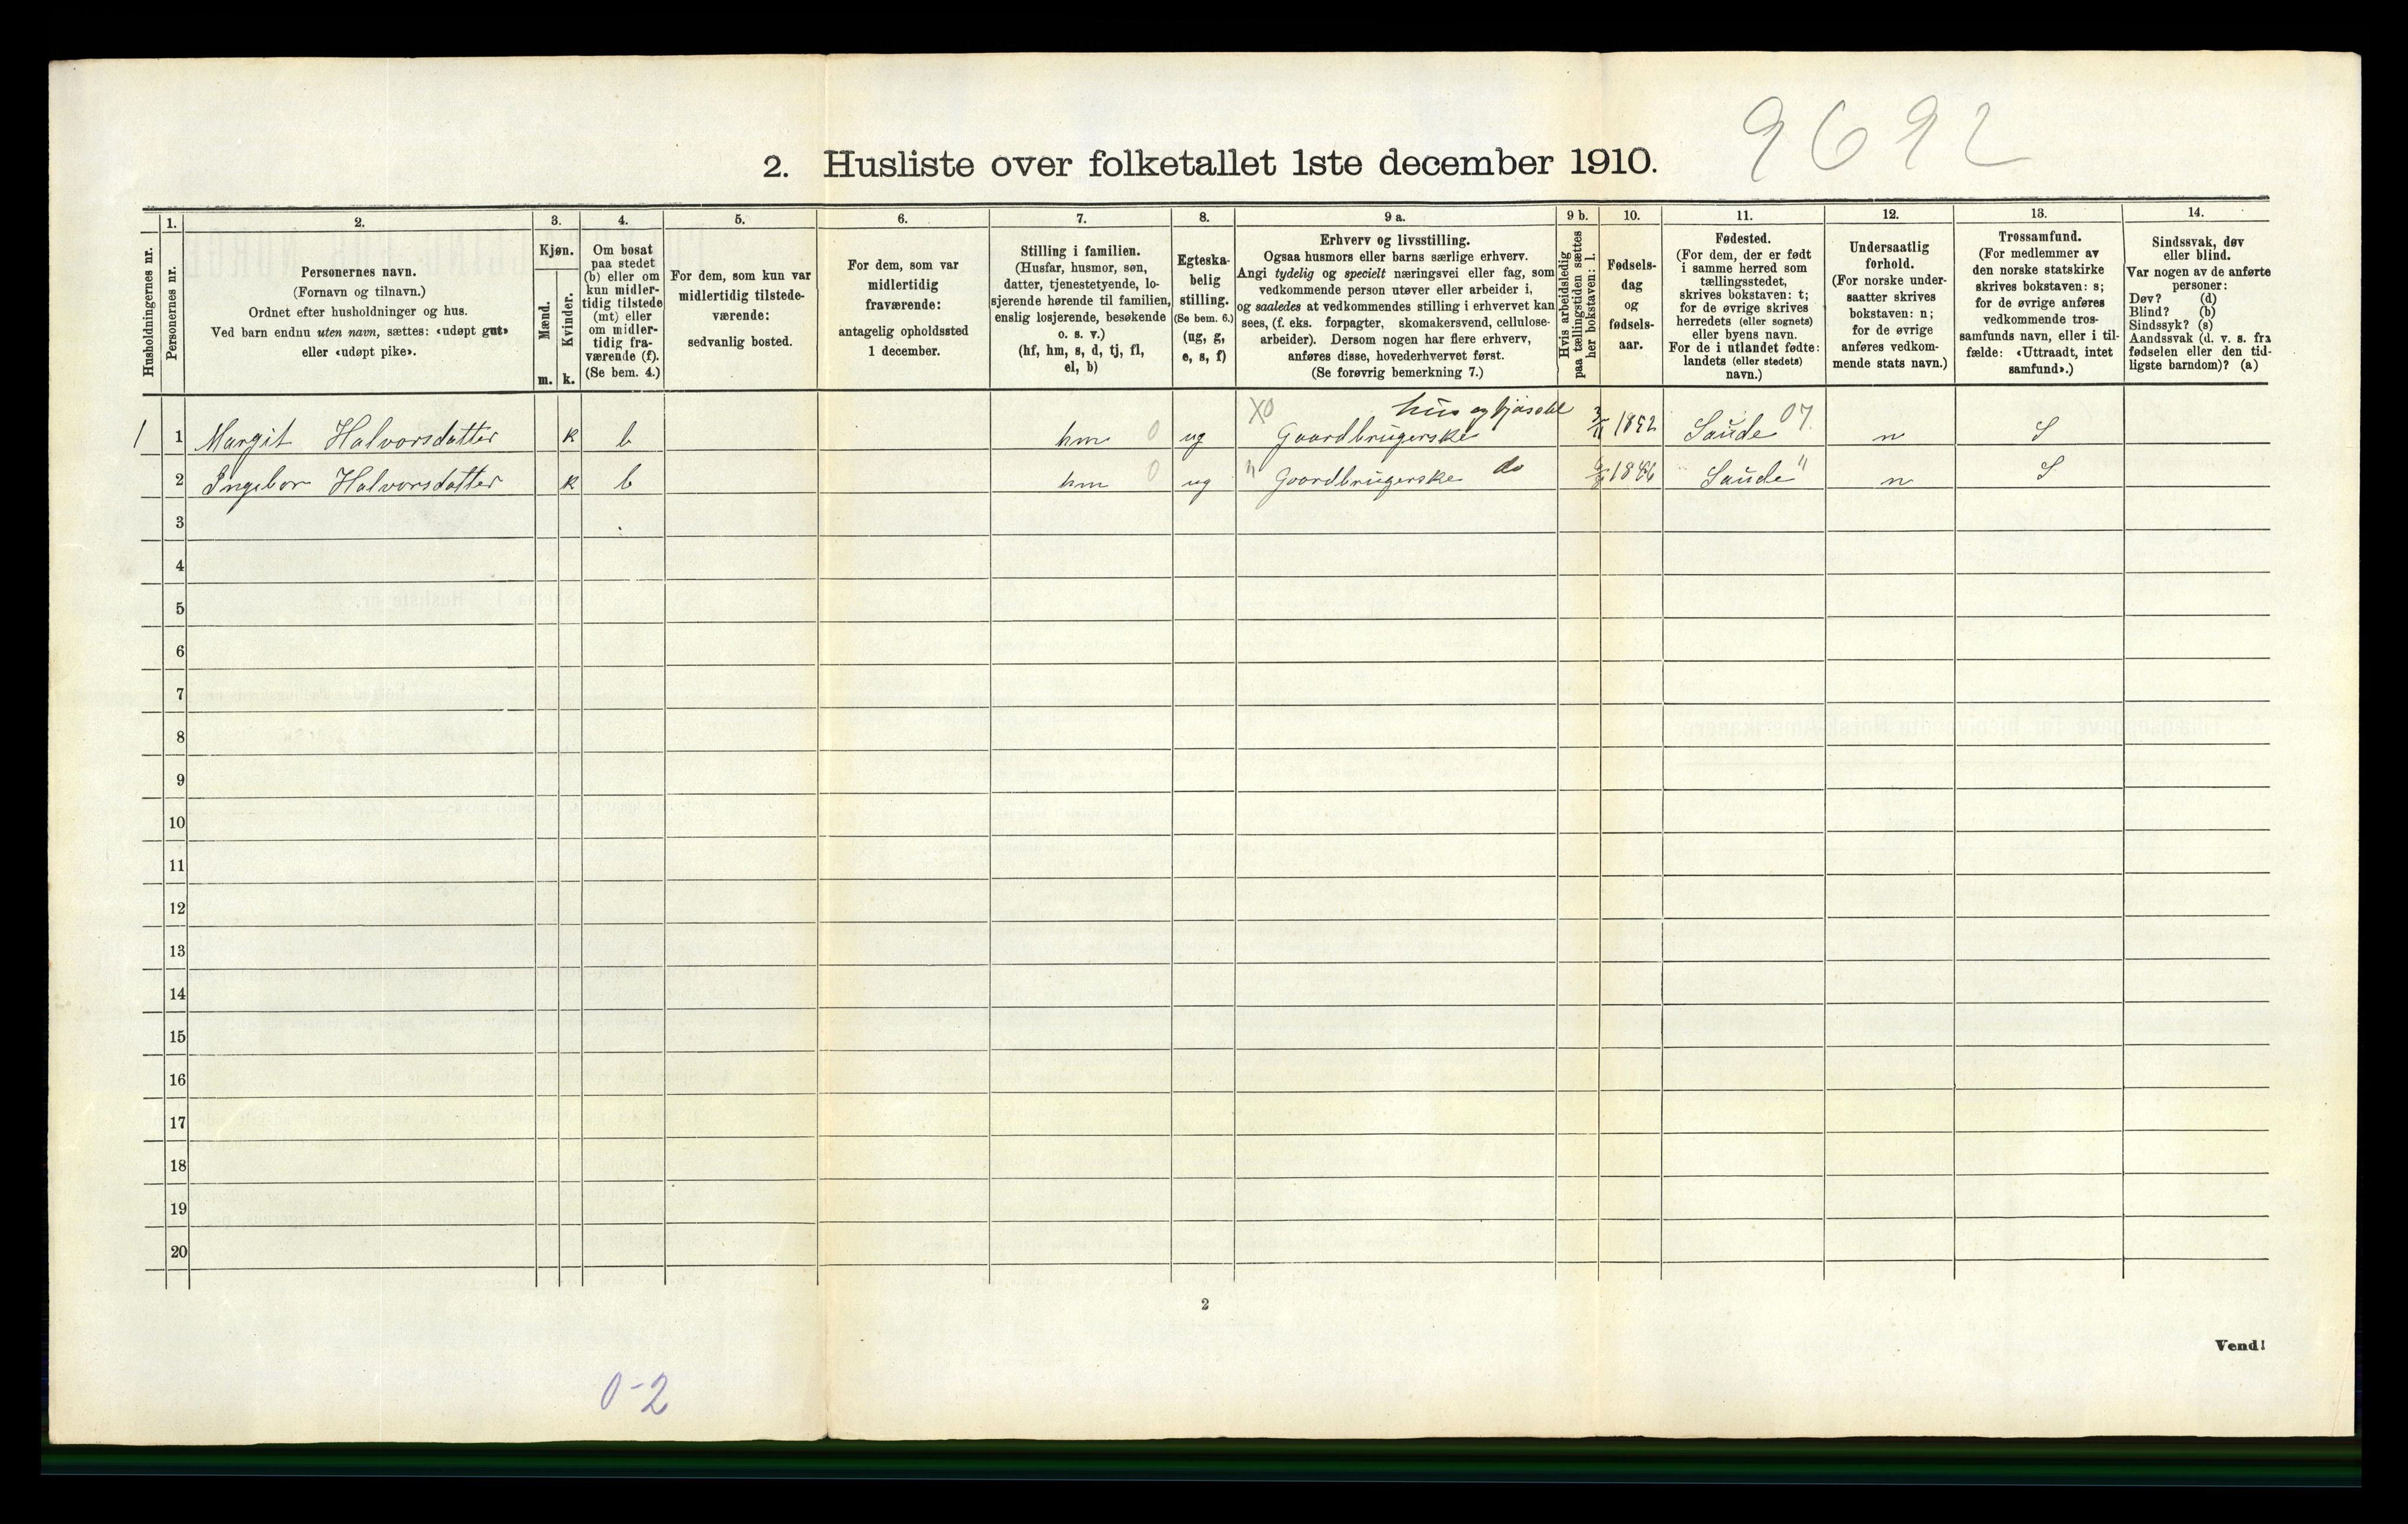 9692
2. Husliste over folketallet 1ste december 1910.
Husholdningernes nr.
1.
Personernes nr.
2.
Personernes navn.
(Fornavn og tilnavn.)
Ordnet efter husholdninger og hus.
Ved barn endnu uten navn, sættes: «udøpt gut»
eller «udøpt pike».
3.
Kjøn.
Mænd.
Kvinder.
m. k.
4.
Om bosat
paa stedet
(b) eller om
kun midler-
tidig tilstede
(mt) eller
om midler-
tidig fra-
værende (f).
(Se bem. 4.)
5.
For dem, som kun var
midlertidig tilstede-
værende:
sedvanlig bosted.
6.
For dem, som var
midlertidig
fraværende:
antagelig opholdssted
1 december.
7.
Stilling i familien.
(Husfar, husmor, søn,
datter, tjenestetyende, lo-
sjerende hørende til familien,
enslig losjerende, besøkende
o. s. v.)
(hf, hm, s, d, tj, fl,
el, b)
8.
Egteska-
belig
stilling.
(Se bem. 6.)
(ug, g,
e, s, f)
9 a.
Erhverv og livsstilling.
Ogsaa husmors eller barns særlige erhverv.
Angi tydelig og specielt næringsvei eller fag, som
vedkommende person utøver eller arbeider i,
og saaledes at vedkommendes stilling i erhvervet kan
sees, (f. eks. forpagter, skomakersvend, cellulose-
arbeider). Dersom nogen har flere erhverv,
anføres disse, hovederhvervet først.
(Se forøvrig bemerkning 7.)
9 b.
Hvis arbeidsledig
paa tællingstiden sættes
her bokstaven: l.
10.
Fødsels-
dag
og
fødsels-
aar.
11.
Fødested.
(For dem, der er født
i samme herred som
tællingsstedet,
skrives bokstaven: t;
for de øvrige skrives
herredets (eller sognets)
eller byens navn.
For de i utlandet fødte:
landets (eller stedets)
navn.)
12.
Undersaatlig
forhold.
(For norske under-
saatter skrives
bokstaven: n;
for de øvrige
anføres vedkom-
mende stats navn.)
13.
Trossamfund.
(For medlemmer av
den norske statskirke
skrives bokstaven: s;
for de øvrige anføres
vedkommende tros-
samfunds navn, eller i til-
fælde: «Uttraadt, intet
samfund».)
14.
Sindssvak, døv
eller blind.
Var nogen av de anførte
personer:
Døv? (d)
Blind? (b)
Sindssyk? (s)
Aandssvak (d. v. s. fra
fødselen eller den tid-
ligste barndom)? (a)
X0 hus og
1 1 Margit Halvorsdatter k b hm 0 ug Gaardbrugerske 3/11 1852 Saude 07. n S
2 Ingebor Halvorsdatter k b hm 0 ug " Gaardbrugerske do 1846 Saude " n S
3
4
5
6
7
8
9
10
11
12
13
14
15
16
17
18
19
20
2
Vend!
0-2